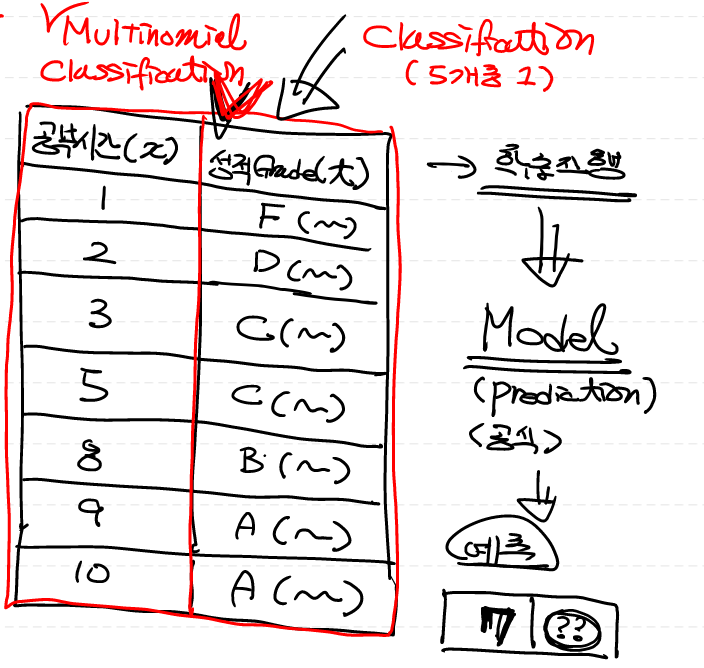 Multinomial
Classification
Classification
(5개중 1)
공부시간(x) 성적Grade(t)
1 F(~)
2 D(~)
3 C(~)
5 C(~)
8 B(~)
9 A(~)
10 A(~)
→ 학습진행
Model
(prediction)
(공식)
예측
7 ??